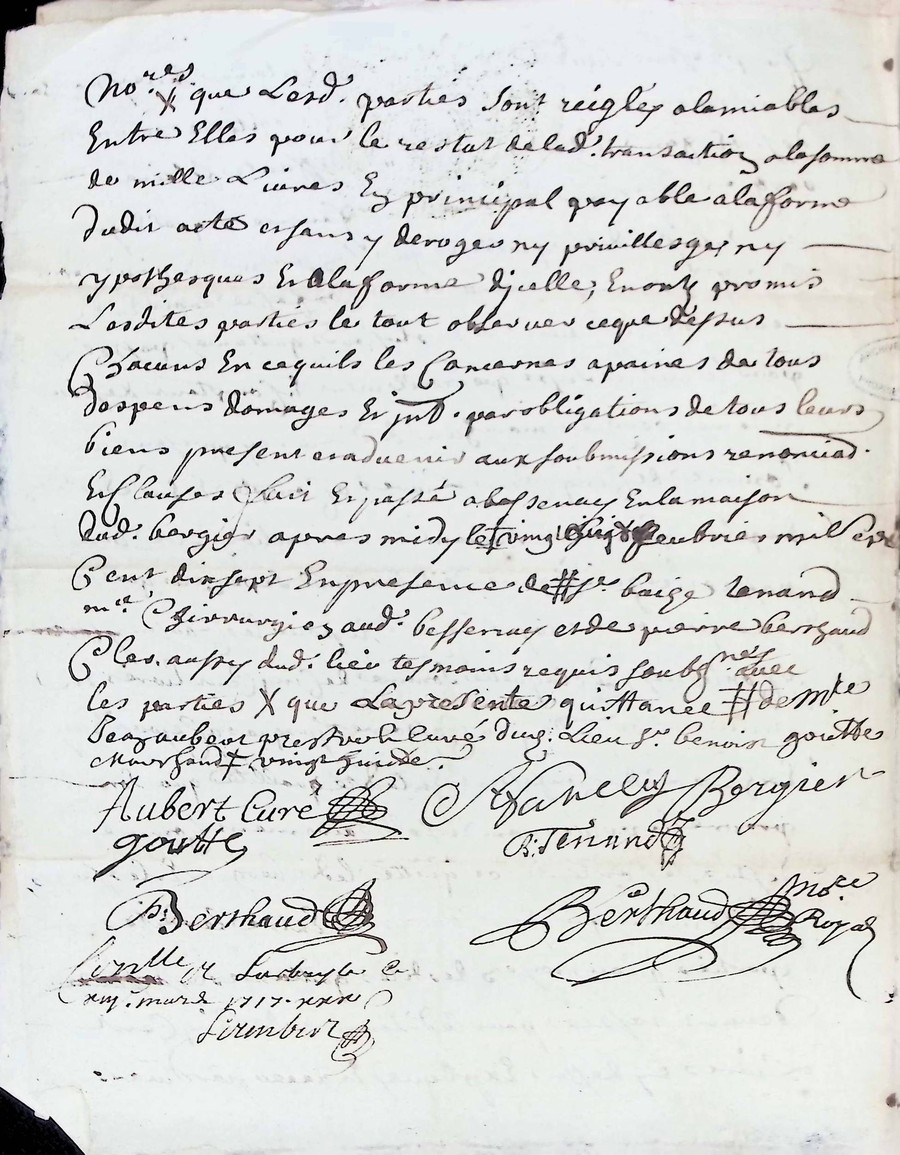 No.res X que Lesd. parties sont réiglés alamiables
Entre Elles pour le restat delad. transaction alasomme
de mille Livres En principal payable alaforme
dudit acte et sans y deroger ny privilleges ny
ypothesques Et alaforme dycelle, En ont promis
Lesdites parties le tout observer ceque dessus
Chacuns En cequils les Concernes apaines de tous
despens domages Et jnt. par obligations de tous leurs
biens present et advenir aux soubmissions renonciad.
Et Clauses fait Et passé a bessenay En lamaison
dud. bergier apres midy le vingt huit feubrier mil sept
Cent dix sept En presence de # sr.
me. Chirurgien aud. bessenay et de pierre berthaud
Clerc aussy dud. lieu tesmoins requis soubsnes avec
les parties X que Lapresente quittance # de Mre
aubert prestre Curé dud. Lieu sr. benoist goutte
Marchand vingt huit
Aubert Curé
Bergier
goutte
B. Tenand
P. Berthaud
Berthaud nore Royal
a Larbresle Ce
mars 1717